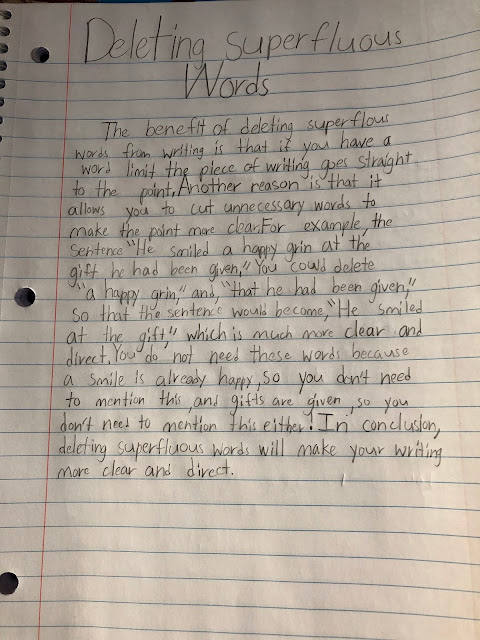 Deleting superfluous
Words
The benefit of deleting superflous
words from writing is that if you have a
word limit the piece of writing goes straight
to the point. Another reason is that it
allows you to cut unnecessary words to
make the point more clear. For example, the
sentence "He smiled a happy grin at the
gift he had been given," You could delete
"a happy grin," and, "that he had been given,"
so that the sentence would become, "He smiled
at the gift," which is much more clear and
direct. You do not need these words because
a smile is already happy, so you don't need
to mention this, and gifts are given, so you
don't need to mention this either! In conclusion,
deleting superfluous words will make your writing
more clear and direct.